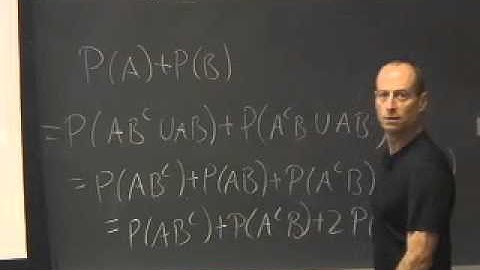 P(A)+P(B)
=P(AB^c ∪ AB)+P(A^cB ∪ AB
=P(AB^c)+P(AB)+P(A^cB)
=P(AB^c)+P(A^cB)+2 P(